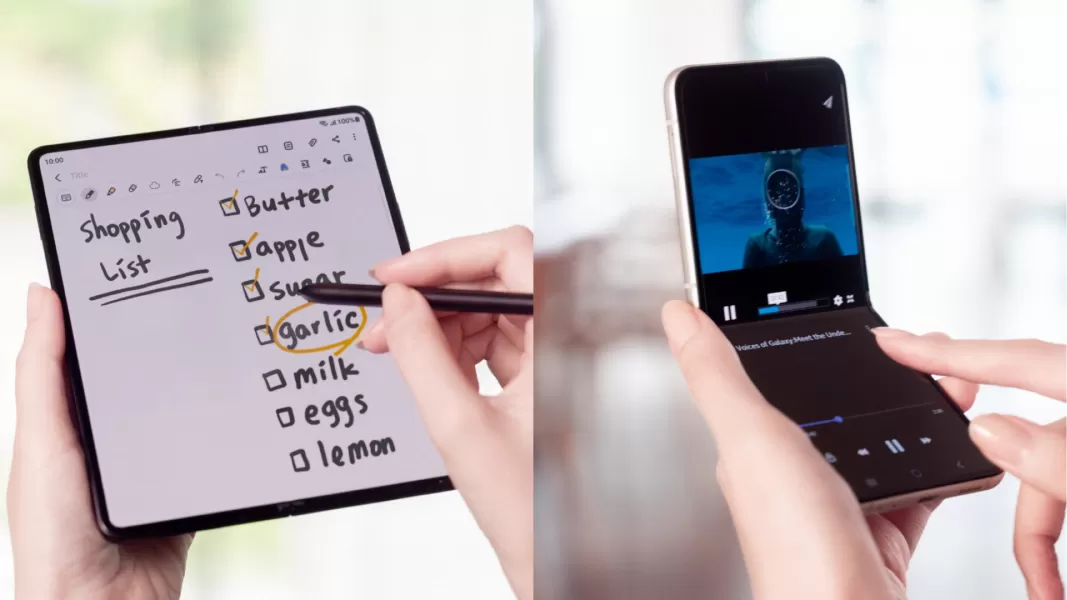 10:00
100%
Title
Shopping
List
Butter
apple
sugar
garlic
milk
eggs
lemon
Voices of Galaxy:Meet the Unde...